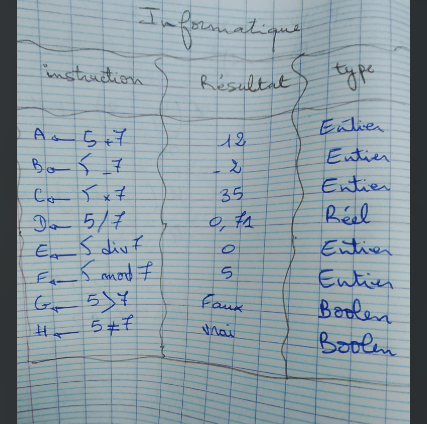 Informatique
instruction Résultat type
A ← 5 + 7 12 Entier
B ← 5 - 7 - 2 Entier
C ← 5 x 7 35 Entier
D ← 5 / 7 0,71 Réel
E ← 5 div 7 0 Entier
F ← 5 mod 7 5 Entier
G ← 5 > 7 Faux Boolen
H ← 5 ≠ 7 vrai Boolen